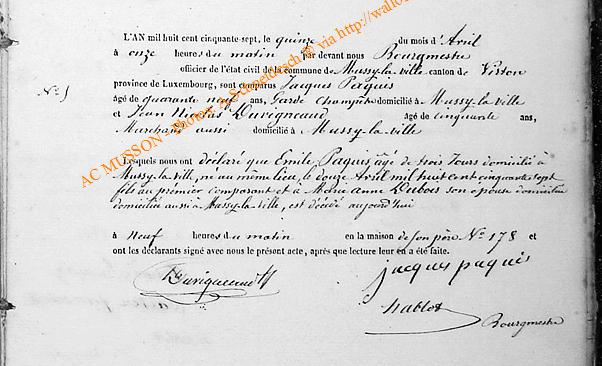 L'AN mil huit cent cinquante-sept, le quinze du mois d'Avril
à onze heures du matin par devant nous Bourgmestre
officier de l'état civil de la commune de Mussy-la-ville canton de Virton
province de Luxembourg, sont comparus Jacques Paquis
N° 5 âgé de quarante neuf ans, Garde Champêtre domicilié à Mussy-la-ville
et Jean Nicolas Duvigneaud âgé de cinquante ans,
Marchand aussi domicilié à Mussy-la-ville
Lesquels nous ont déclaré que Emile Paquis âgé de trois Jours domicilié à
Mussy-la-ville, né au même lieu, le douze Avril mil huit cent cinquante sept
fils au premier comparant et à Marie Anne Dubois son épouse domiciliée
domiciliée aussi à Mussy-la-ville, est décédé aujourd'hui
à neuf heures du matin en la maison de son père N° 178 et
ont les déclarants signé avec nous le présent acte, après que lecture leur en a été faite.
Duvigneaud jacques paquis
hablot
Bourgmestre
AC MUSSON - Photos: A. Schneidesch © via http://wallo